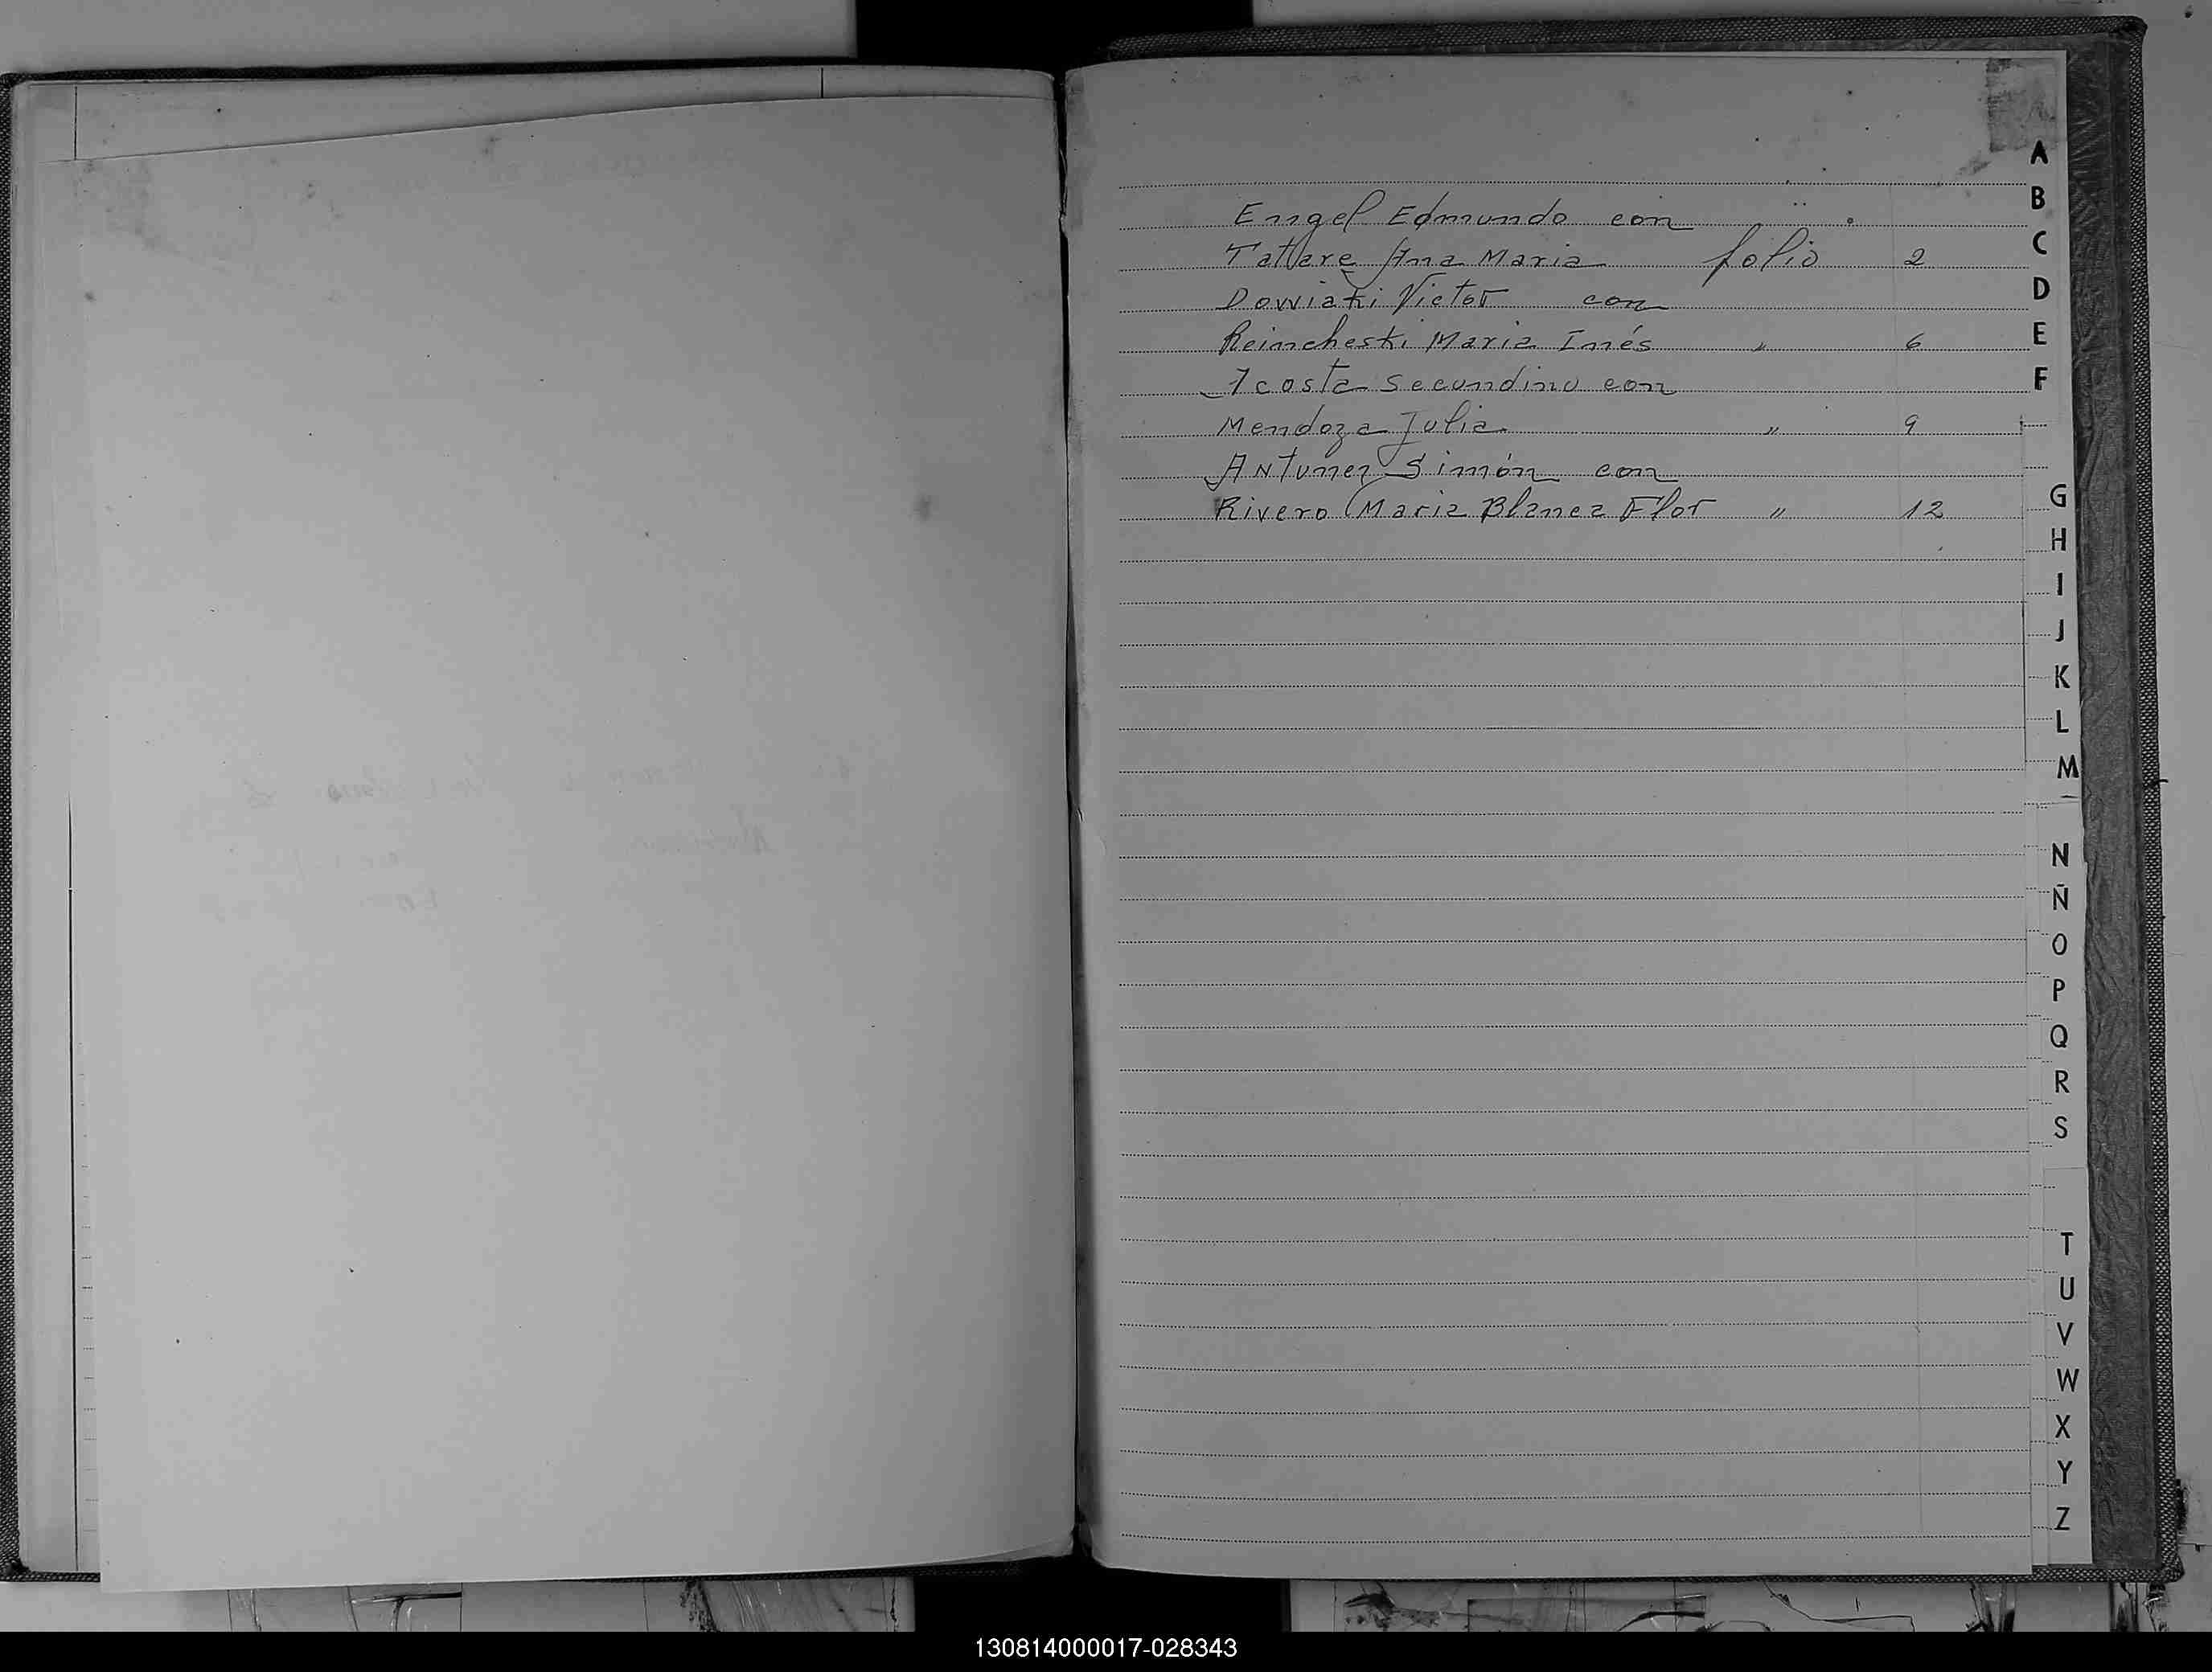 Engel Edmundo con
Tatlare Ana Maria folio 2
Dowiaki Victor con
Reincheski Maria Inés " 6
Acosta Secundino con
Mendoza Julia " 9
Antunez Simón con
Rivero Maria Blanca Flor " 12
A
B
C
D
E
F
G
H
I
J
K
L
M
N
Ñ
O
P
Q
R
S
T
U
V
W
X
Y
Z
130814000017-028343